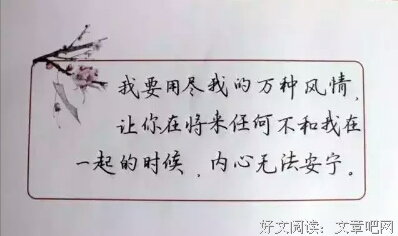 我要用尽我的万种风情，
让你在将来任何不和我在
一起的时候，内心无法安宁。
好文阅读：文章吧网